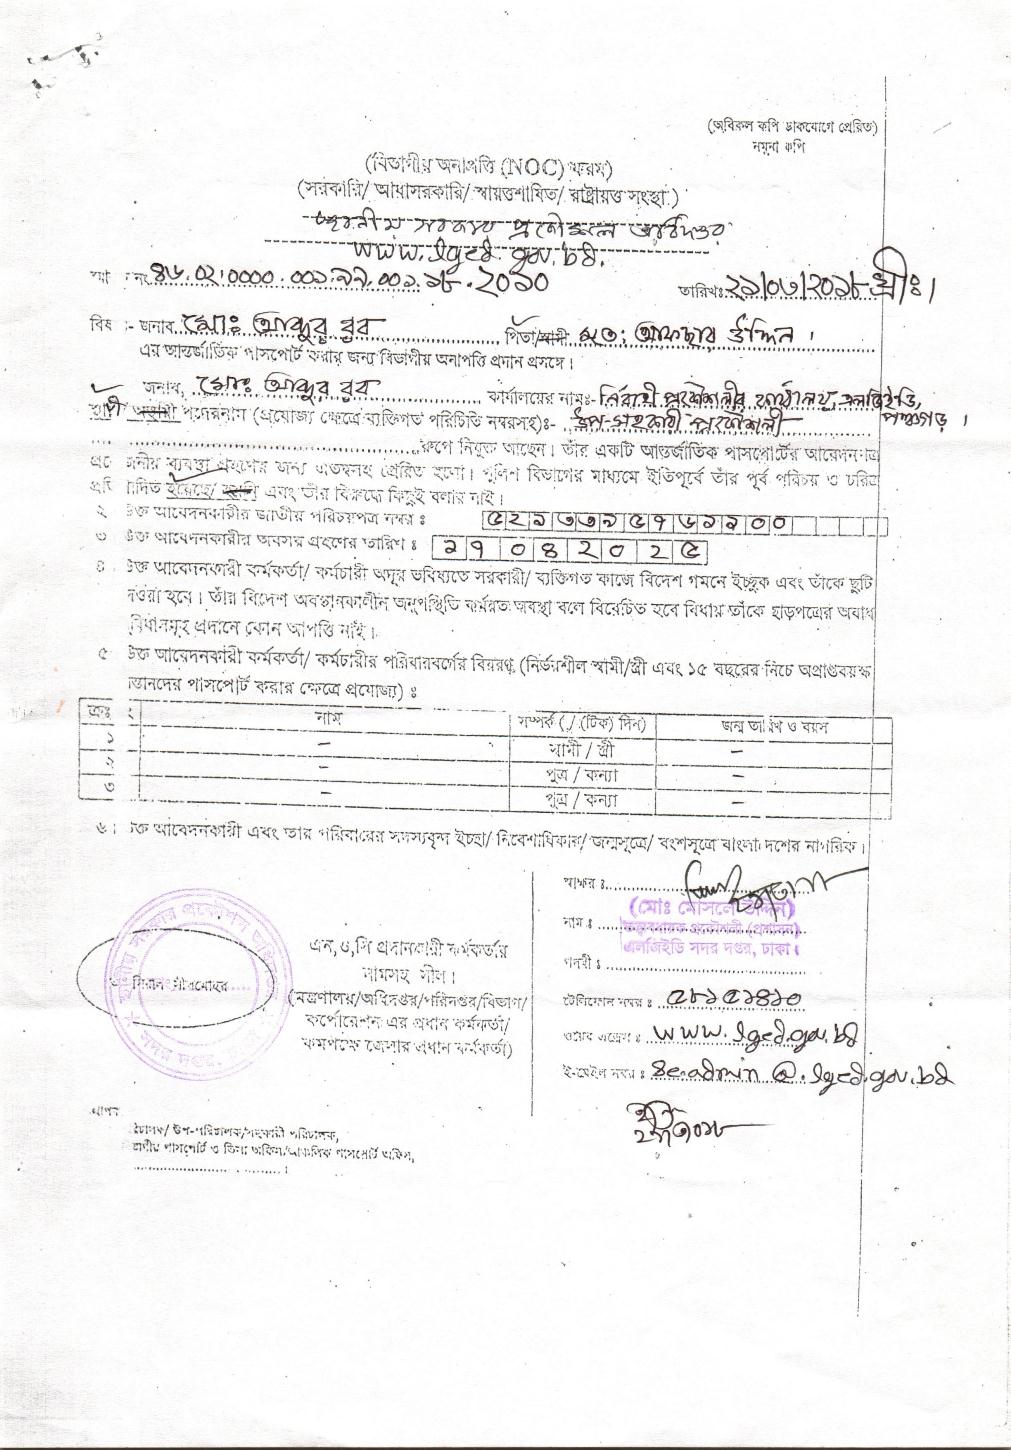 (অবিকল কপি ডাকযোগে প্রেরিত)
নমুনা কপি
(বিভাগীয় অনাপত্তি (NOC) ফরম)
(সরকারি/ আধাসরকারি/ স্বায়ত্তশাষিত/ রাষ্ট্রায়ত্ত সংস্থা)
স্থানীয় সরকার প্রকৌশল অধিদপ্তর
www.lged.gov.bd.
নং ৪৬.০২.০০০০.০০১.৯৯.০০১.১৮-২০১০ তারিখঃ ২১/০৩/২০১৮ খ্রীঃ।
বিষ :- জনাব মোঃ আব্দুর রব পিতা/স্বামী মৃত: আফছার উদ্দিন।
এর আন্তর্জাতিক পাসপোর্ট করার জন্য বিভাগীয় অনাপত্তি প্রদান প্রসঙ্গে।
জনাব, মোঃ আব্দুর রব কার্যালয়ের নামঃ- নির্বাহী প্রকৌশলীর কার্যালয়, এলজিইডি, পঞ্চগড়।
স্থায়ী/ অস্থায়ী পদেরনাম (প্রযোজ্য ক্ষেত্রে ব্যক্তিগত পরিচিতি নম্বরসহ)ঃ- উপ-সহকারী প্রকৌশলী
রুপে নিযুক্ত আছেন। তাঁর একটি আন্তর্জাতিক পাসপোর্টের আবেদনপত্র
জনীয় ব্যবস্থা গ্রহণের জন্য এতদ্বসহ প্রেরিত হলো। পুলিশ বিভাগের মাধ্যমে ইতিপূর্বে তাঁর পূর্ব পরিচয় ও চরিত্র
প্রতিপাদিত হয়েছে/ হয়নি এবং তাঁর বিরুদ্ধে কিছুই বলার নাই।
২ উক্ত আবেদনকারীর জাতীয় পরিচয়পত্র নম্বর ঃ
৩ উক্ত আবেদনকারীর অবসর গ্রহণের তারিখ ঃ ২৭০৪২০২৫
৪। উক্ত আবেদনকারী কর্মকর্তা/ কর্মচারী অদূর ভবিষ্যতে সরকারী/ ব্যক্তিগত কাজে বিদেশ গমনে ইচ্ছুক এবং তাঁকে ছুটি
দওয়া হবে। তাঁর বিদেশ অবস্থানকালীন অনুপস্থিতি কর্মরত অবস্থা বলে বিবেচিত হবে বিধায় তাঁকে ছাড়পত্রের অবাধ
বিধানসমূহ প্রদানে কোন আপত্তি নাই।
৫ উক্ত আবেদনকারী কর্মকর্তা/ কর্মচারীর পরিবারবর্গের বিবরণ (নির্ভরশীল স্বামী/স্ত্রী এবং ১৫ বছরের নিচে অপ্রাপ্তবয়স্ক
ন্তানদের পাসপোর্ট করার ক্ষেত্রে প্রযোজ্য) ঃ
ক্রঃ নাম সম্পর্ক (√ (টিক) দিন) জন্ম তারিখ ও বয়স
১ – স্বামী / স্ত্রী –
২ – পুত্র / কন্যা –
৩ – পুত্র / কন্যা –
৬। উক্ত আবেদনকারী এবং তার পরিবারের সদস্যবৃন্দ ইচ্ছা/ নিবেশাধিকার/ জন্মসূত্রে/ বংশসূত্রে বাংলাদেশের নাগরিক।
স্বাক্ষর ঃ
নাম ঃ (মোঃ মোসলে উদ্দিন)
তত্ত্বাবধায়ক প্রকৌশলী (প্রশাসন)
এলজিইডি সদর দপ্তর, ঢাকা।
পদবী ঃ
টেলিফোন নম্বর ঃ ৫৮১৫১৪১০
ওয়েব এড্রেস ঃ www.lged.gov.bd
ই-মেইল নম্বর ঃ se.admin@.lged.gov.bd
স্থানীয় সরকার প্রকৌশল অধিদপ্তর
সদর দপ্তর
এন,ও,সি প্রদানকারী কর্মকর্তার
নামসহ সীল।
(মন্ত্রণালয়/অধিদপ্তর/পরিদপ্তর/বিভাগ/
কর্পোরেশন এর প্রধান কর্মকর্তা/
কমপক্ষে জেলার প্রধান কর্মকর্তা)
রচালক/ উপ-পরিচালক/সহকারী পরিচালক,
ভাগীয় পাসপোর্ট ও ভিসা অফিস/আঞ্চলিক পাসপোর্ট অফিস,